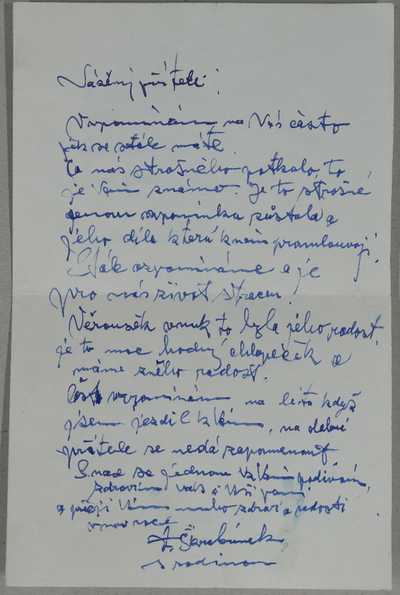 Vážený příteli!
Vzpomínám na Vás často
jak se stále máte.
Co nás strašného potkalo, to
je Vám známo. Je to strašné
jenom vzpomínka zůstala a
jeho díla která k nám promlouvají.
Stále vzpomínáme a je
pro nás život ztracen.
Věroušek vnuk to byla jeho radost,
je to moc hodný chlapeček a
máme z něho radost.
Často vzpomínám na léta když
jsem jezdil k Vám, na dobré
přátele se nedá zapomenout
Snad se jednou k Vám podívám,
zdravím Vás a Vaší paní
a přeji Vám mnoho zdraví a radosti
v novém roce
s rodinou